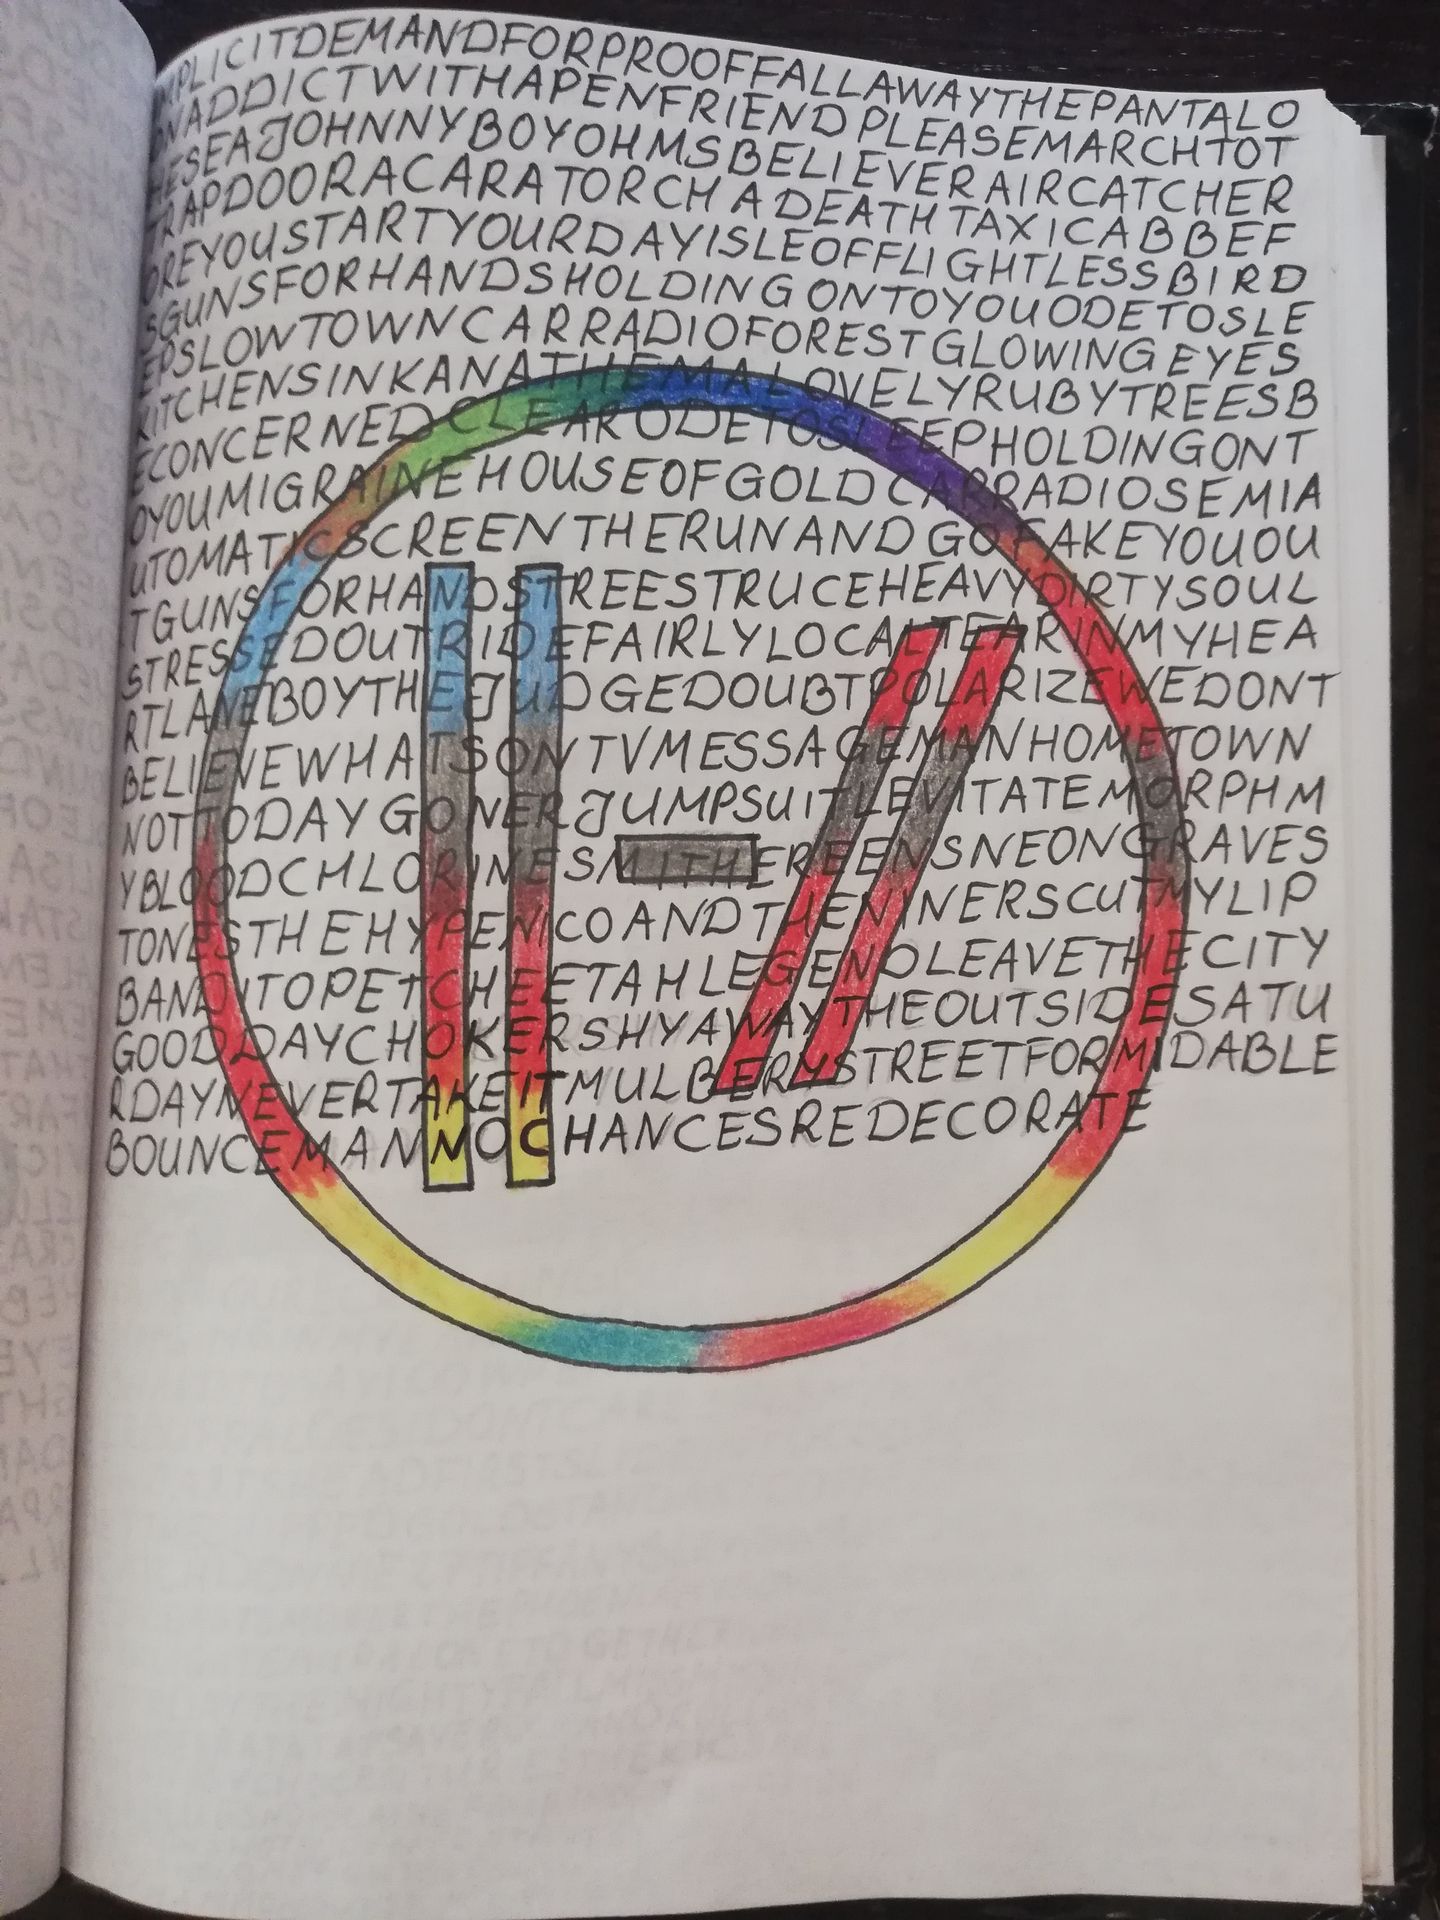 IMPLICITDEMANDFORPROOFFALLAWAYTHEPANTALO
ONADDICTWITHAPENFRIENDPLEASEMARCHTOT
HESEAJOHNNYBOYOHMSBELIEVERAIRCATCHER
TRAPDOORACARATORCHADEATHTAXICABBEF
OREYOUSTARTYOURDAYISLEOFFLIGHTLESSBIRD
SGUNSFORHANDSHOLDINGONTOYOUODETOSLE
EPSLOWTOWNCARRADIOFORESTGLOWINGEYES
KITCHENSINKANATHEMALOVELYRUBYTREESB
ECONCERNEDCLEARODETOSLEEPHOLDINGONT
OYOUMIGRAINEHOUSEOFGOLDCARRADIOSEMIA
UTOMATICSCREENTHERUNANDGOFAKEYOUOU
TGUNSFORHANDSTREESTRUCEHEAVYDIRTYSOUL
STRESSEDOUTRIDEFAIRLYLOCALTEARINMYHEA
RTLANEBOYTHEJUDGEDOUBTPOLARIZEWEDONT
BELIEVEWHATSONTVMESSAGEMANHOMETOWN
NOTTODAYGONERJUMPSUITLEVITATEMORPHM
YBLOODCHLORINESMITHEREENSNEONGRAVES
TONESTHEHYPENICOANDTHENINERSCUTMYLIP
BANDITOPETCHEETAHLEGENDLEAVETHECITY
GOODDAYCHOKERSHYAWAYTHEOUTSIDESATU
RDAYNEVERTAKEITMULBERYSTREETFORMIDABLE
BOUNCEMANNOCHANCESREDECORATE